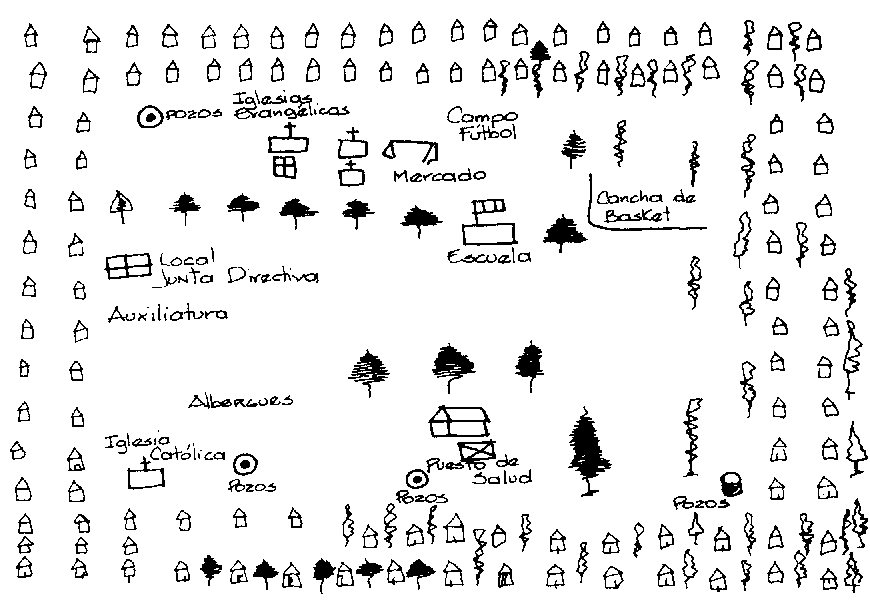 Pozos
Iglesias
Evangélicas
Campo
Fútbol
Mercado
Cancha de
Basket
Escuela
Local
Junta Directiva
Auxiliatura
Albergues
Iglesia
Católica
Pozos
Puesto de
Salud
Pozos
Pozos